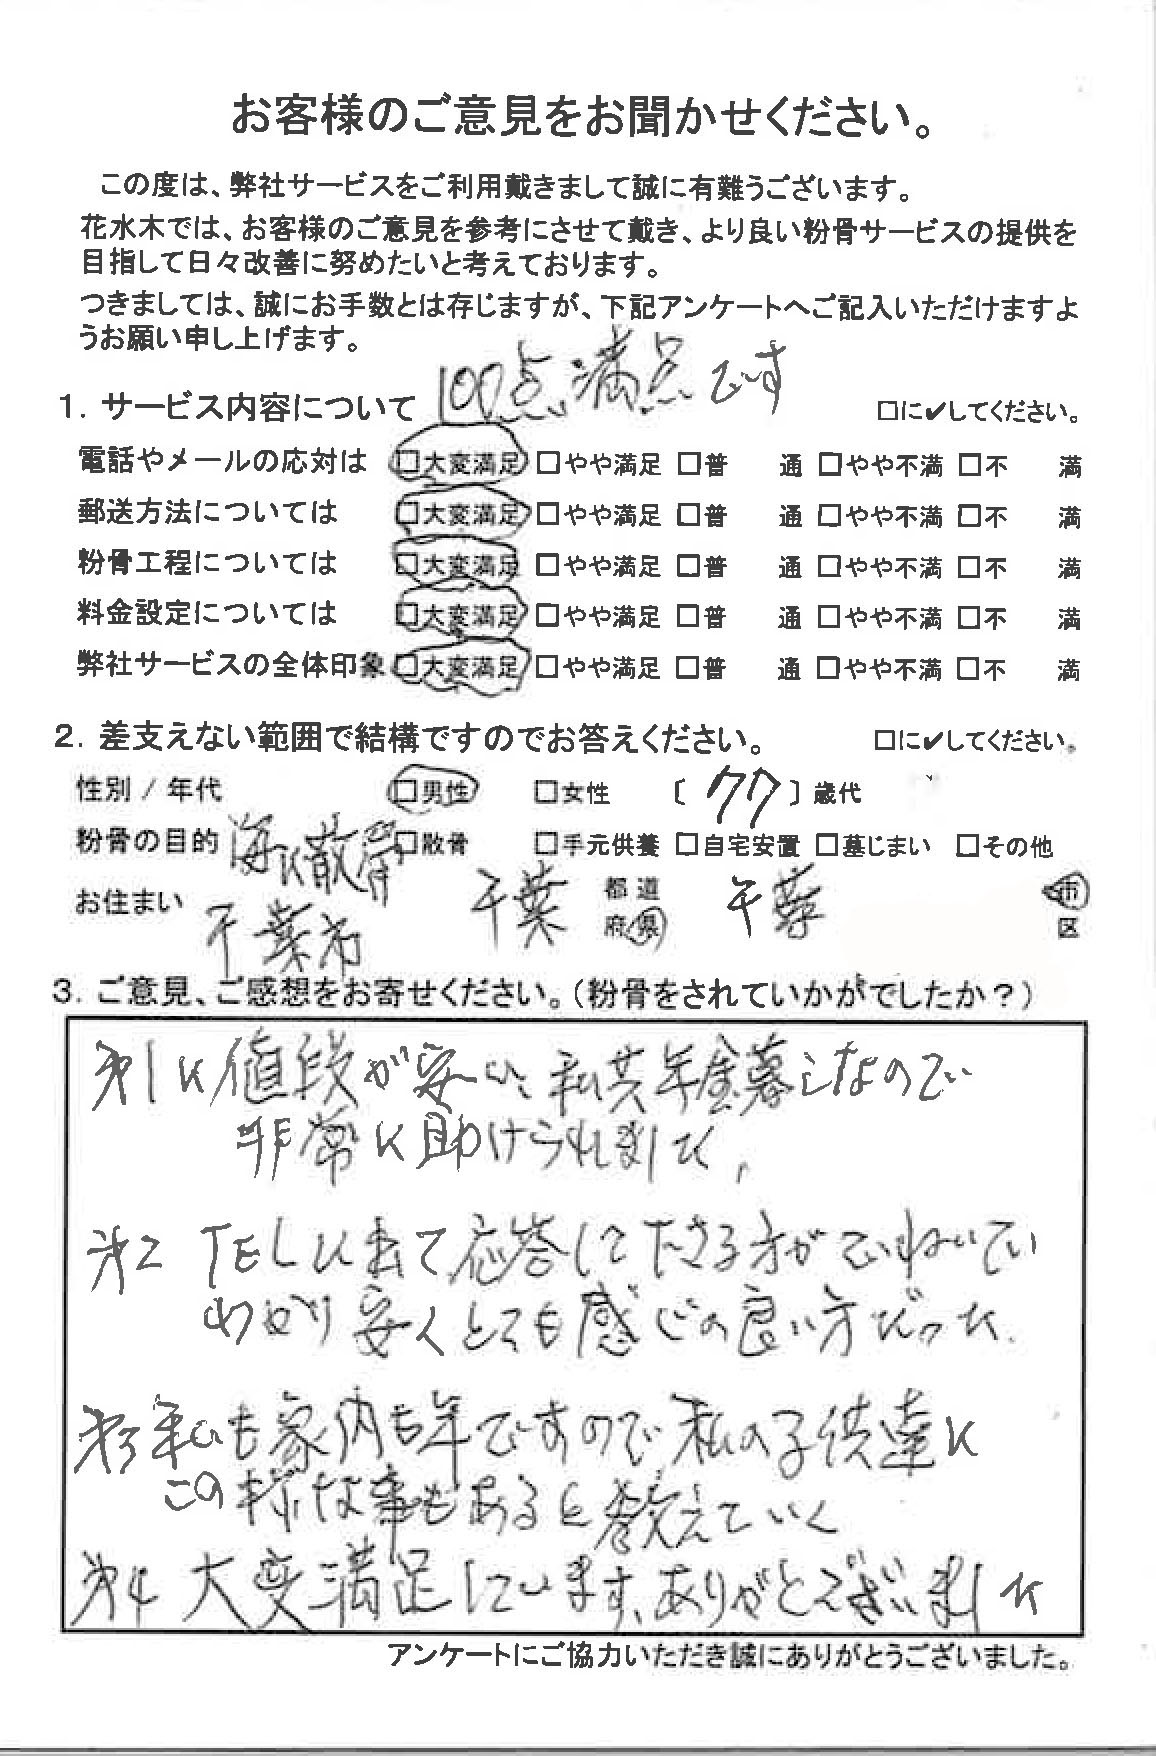 お客様のご意見をお聞かせください。
この度は、弊社サービスをご利用戴きまして誠に有難うございます。
花水木では、お客様のご意見を参考にさせて戴き、より良い粉骨サービスの提供を
目指して日々改善に努めたいと考えております。
つきましては、誠にお手数とは存じますが、下記アンケートへご記入いただけますよ
うお願い申し上げます。
100点満点です
1. サービス内容について □に✔してください。
電話やメールの応対は □大変満足 □やや満足 □普 通 □やや不満 □不 満
郵送方法については □大変満足 □やや満足 □普 通 □やや不満 □不 満
粉骨工程については □大変満足 □やや満足 □普 通 □やや不満 □不 満
料金設定については □大変満足 □やや満足 □普 通 □やや不満 □不 満
弊社サービスの全体印象 □大変満足 □やや満足 □普 通 □やや不満 □不 満
2. 差支えない範囲で結構ですのでお答えください。 □に✔してください。
性別 / 年代 □男性 □女性 〔 77 〕歳代
粉骨の目的 海に散骨 □散骨 □手元供養 □自宅安置 □墓じまい □その他
お住まい 千葉市 千葉 都道府県 千葉 市区
3. ご意見、ご感想をお寄せください。（粉骨をされていかがでしたか？）
才1に値段が安い、私共年金暮しなので
非常に助けられました,
才2 TELに出て応答して下さる方がていねいで
わかり安くとても感じの良い方だった.
才3 私も家内も年ですので私の子供達に
この様な事もあると教えていく
才4 大変満足しています、ありがとうございました
アンケートにご協力いただき誠にありがとうございました。